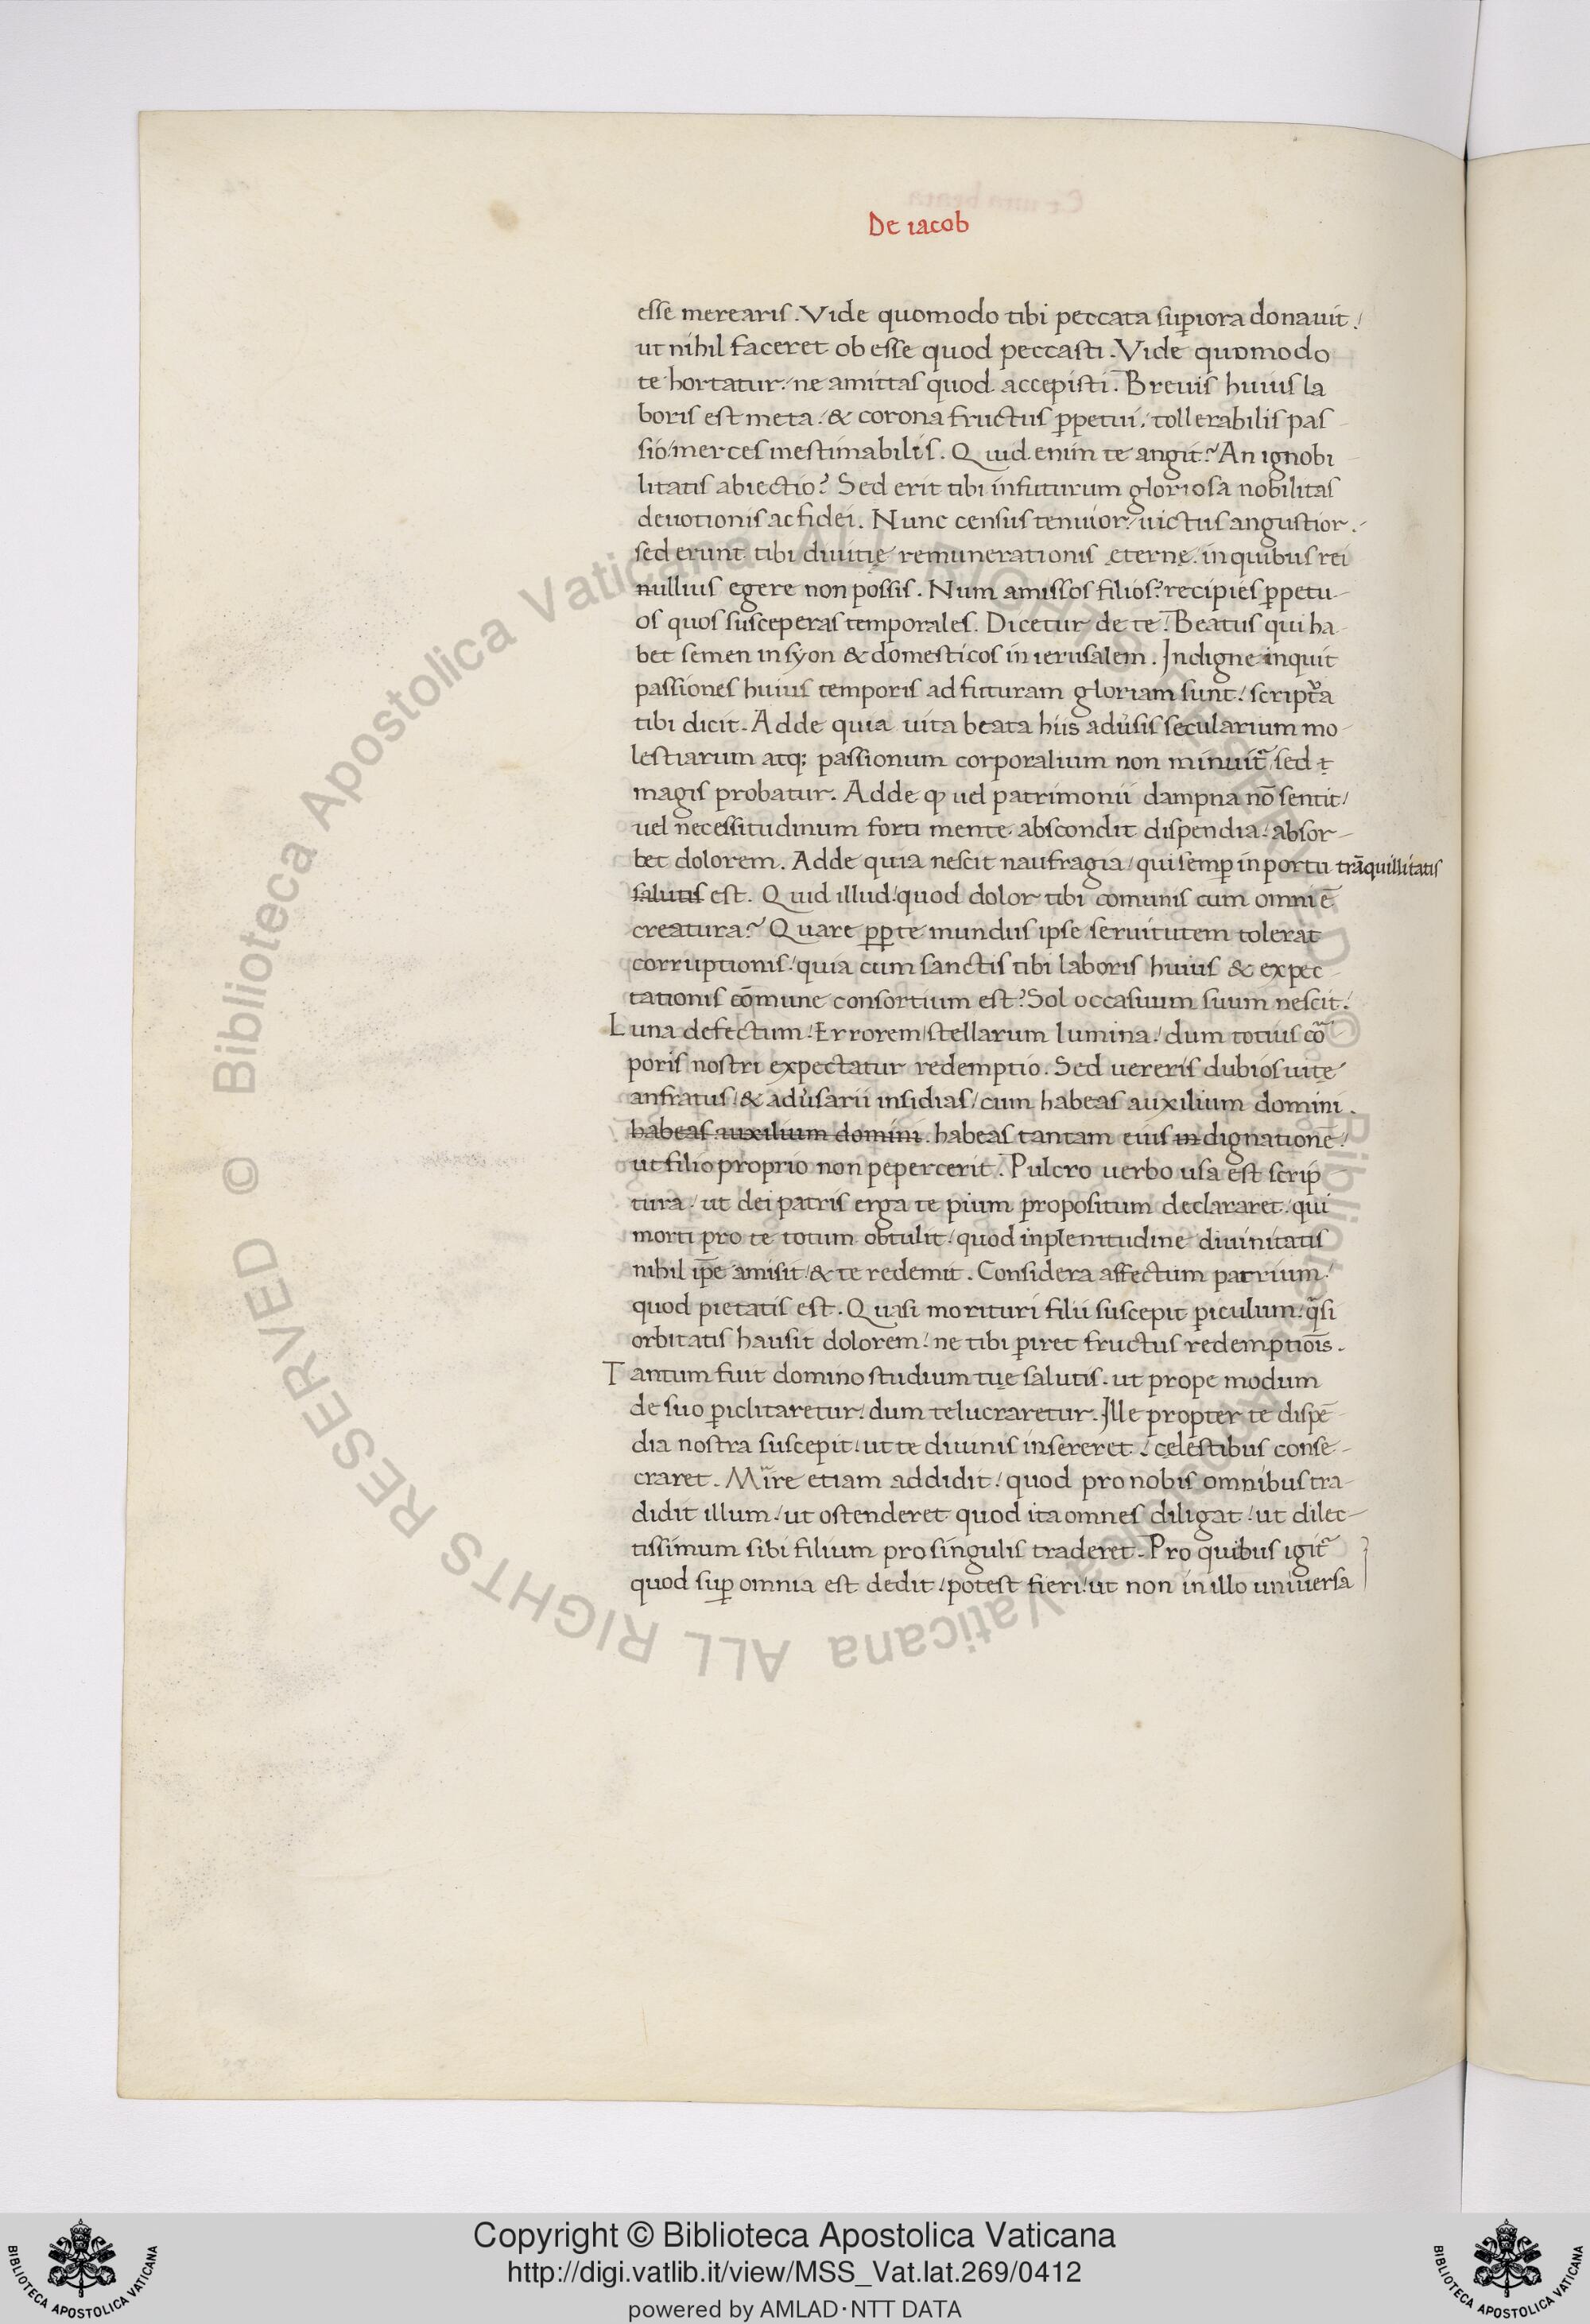 De iacob
esse merearis. Vide quomodo tibi peccata sup̄iora donauit/
ut nihil faceret obesse quod peccasti. Vide quomodo
te hortatur/ ne amittas quod accepisti. Breuis huius la
boris est meta/ & corona fructus p̄petui/ tollerabilis pas-
sio/ merces inestimabilis. Quid enim te angit? An ignobi-
litatis abiectio? Sed erit tibi infuturum gloriosa nobilitas
deuotionis ac fidei. Nunc census tenuior/ uictus angustior./
sed erunt tibi diuitię remunerationis ęternę. in quibus rei
nullius egere non possis. Num amissos filios? recipies p̄petu-
os quos susceperas temporales. Dicetur de te/ Beatus qui ha-
bet semen in syon & domesticos in ierusalem. Indigne inquit
passiones huius temporis ad futuram gloriam sunt/ scriptͣa
tibi dicit. Adde quia uita beata hiis adu͛sis secularium mo-
lestiarum atq; passionum corporalium non minuit᷑/ sed ę
magis probatur. Adde ꝙ uel patrimonii dampna nō sentit/
uel necessitudinum forti mente abscondit dispendia/ absor-
bet dolorem. Adde quia nescit naufragia/ qui semp̄ in portu trāquillitatis
salutis est. Quid illud/ quod dolor tibi comunis cum omni ē
creatura? Quare p̄p̄ te mundus ipse seruitutem tolerat
corruptionis/ quia cum sanctis tibi laboris huius & expec-
tationis cōmune consortium est? Sol occasuum suum nescit/
Luna defectum/ Errorem/ stellarum lumina/ dum totius co᷑-
poris nostri expectatur redemptio. Sed uereris dubios uitę
anfratus/ & adu͛sarii insidias/ cum habeas auxilium domini.
habeas auxilium domini. habeas tantam eius in dignationē/
ut filio proprio non pepercerit. Pulcro uerbo usa est scrip-
tura/ ut dei patris erga te pium propositum declararet/ qui
morti pro te totum obtulit/ quod inplenitudine diuinitatis
nihil ip̄e amisit/ & te redemit. Considera affectum patrium/
quod pietatis est. Quasi morituri filii suscepit p̄iculum/ qͣsi
orbitatis hausit dolorem/ ne tibi p̄iret fructus redemptiōis.
Tantum fuit domino studium tuę salutis. ut prope modum
de suo p̄iclitaretur/ dum te lucraretur. Ille propter te dispē-
dia nostra suscepit/ ut te diuinis insereret/ cęlestibus conse-
craret. Mire etiam addidit/ quod pro nobis omnibus tra-
didit illum/ ut ostenderet quod ita omnes diligat/ ut dilec-
tissimum sibi filium pro singulis traderet. Pro quibus igit᷑
quod sup̄ omnia est dedit/ potest fieri/ ut non in illo uniuersa
© Biblioteca Apostolica Vaticana ALL RIGHTS RESERVED © Biblioteca Apostolica Vaticana ALL RIGHTS RESERVED
Copyright © Biblioteca Apostolica Vaticana
http://digi.vatlib.it/view/MSS_Vat.lat.269/0412
powered by AMLAD·NTT DATA
BIBLIOTECA APOSTOLICA VATICANA
BIBLIOTECA APOSTOLICA VATICANA